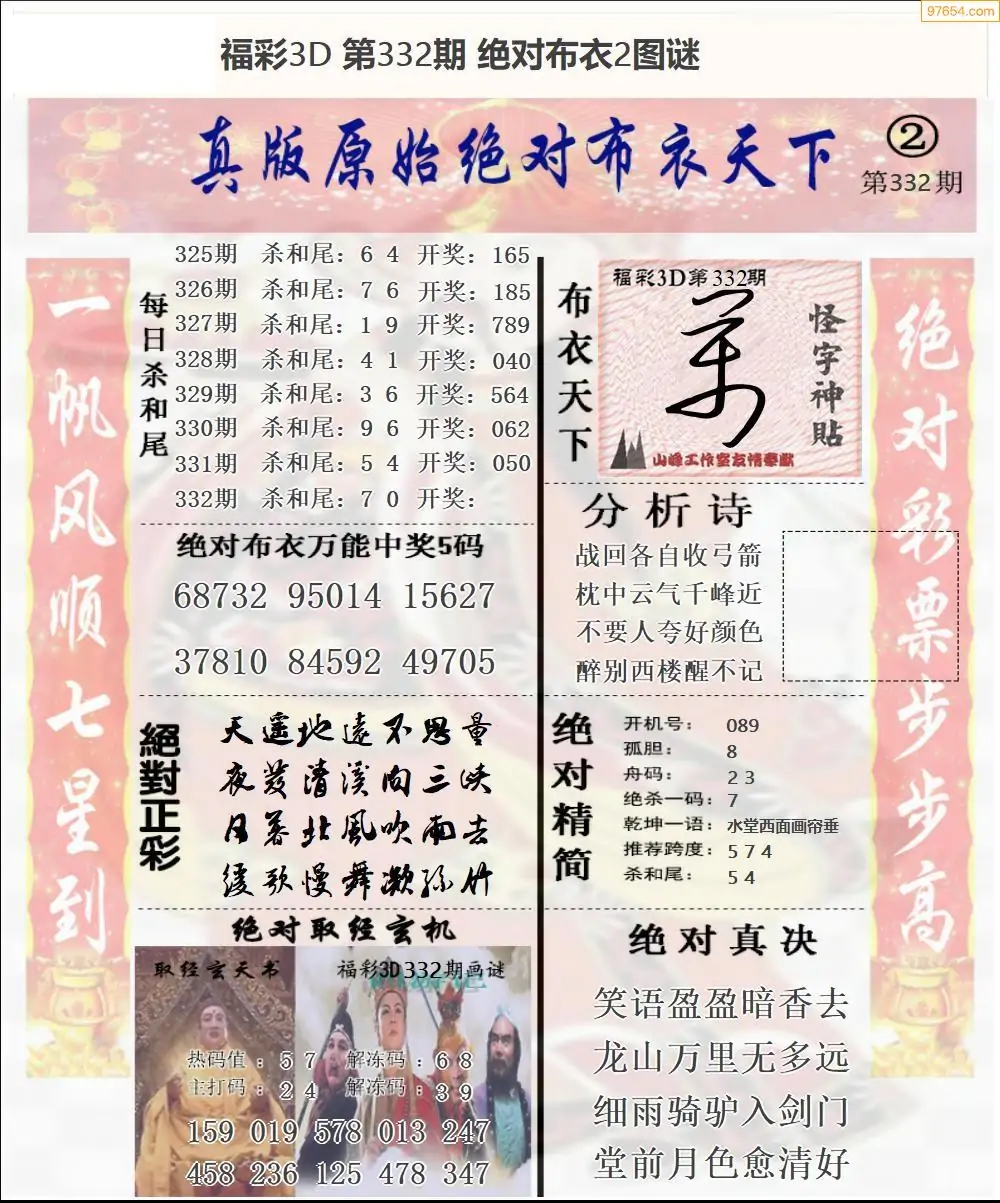 97654.com
福彩3D 第332期 绝对布衣2图谜
真版原始绝对布衣天下
②
第332期
一帆风顺七星到
每日杀和尾
325期 杀和尾：6 4 开奖：165
326期 杀和尾：7 6 开奖：185
327期 杀和尾：1 9 开奖：789
328期 杀和尾：4 1 开奖：040
329期 杀和尾：3 6 开奖：564
330期 杀和尾：9 6 开奖：062
331期 杀和尾：5 4 开奖：050
332期 杀和尾：7 0 开奖：
绝对布衣万能中奖5码
68732 95014 15627
37810 84592 49705
絕對正彩
天遥地遠不思量
夜发清溪向三峡
日暮北風吹雨去
缓歌慢舞凝丝竹
绝对取经玄机
取经玄天书
福彩3D332期画谜
热码值：5 7 解冻码：6 8
主打码：2 4 解冻码：3 9
159 019 578 013 247
458 236 125 478 347
布衣天下
福彩3D第332期
怪字神贴
山峰工作室友情奉献
分析诗
战回各自收弓箭
枕中云气千峰近
不要人夸好颜色
醉别西楼醒不记
绝对精简
开机号：089
孤胆：8
舟码：2 3
绝杀一码：7
乾坤一语：水堂西面画帘垂
推荐跨度：5 7 4
杀和尾：5 4
绝对真决
笑语盈盈暗香去
龙山万里无多远
细雨骑驴入剑门
堂前月色愈清好
绝对彩票步步高